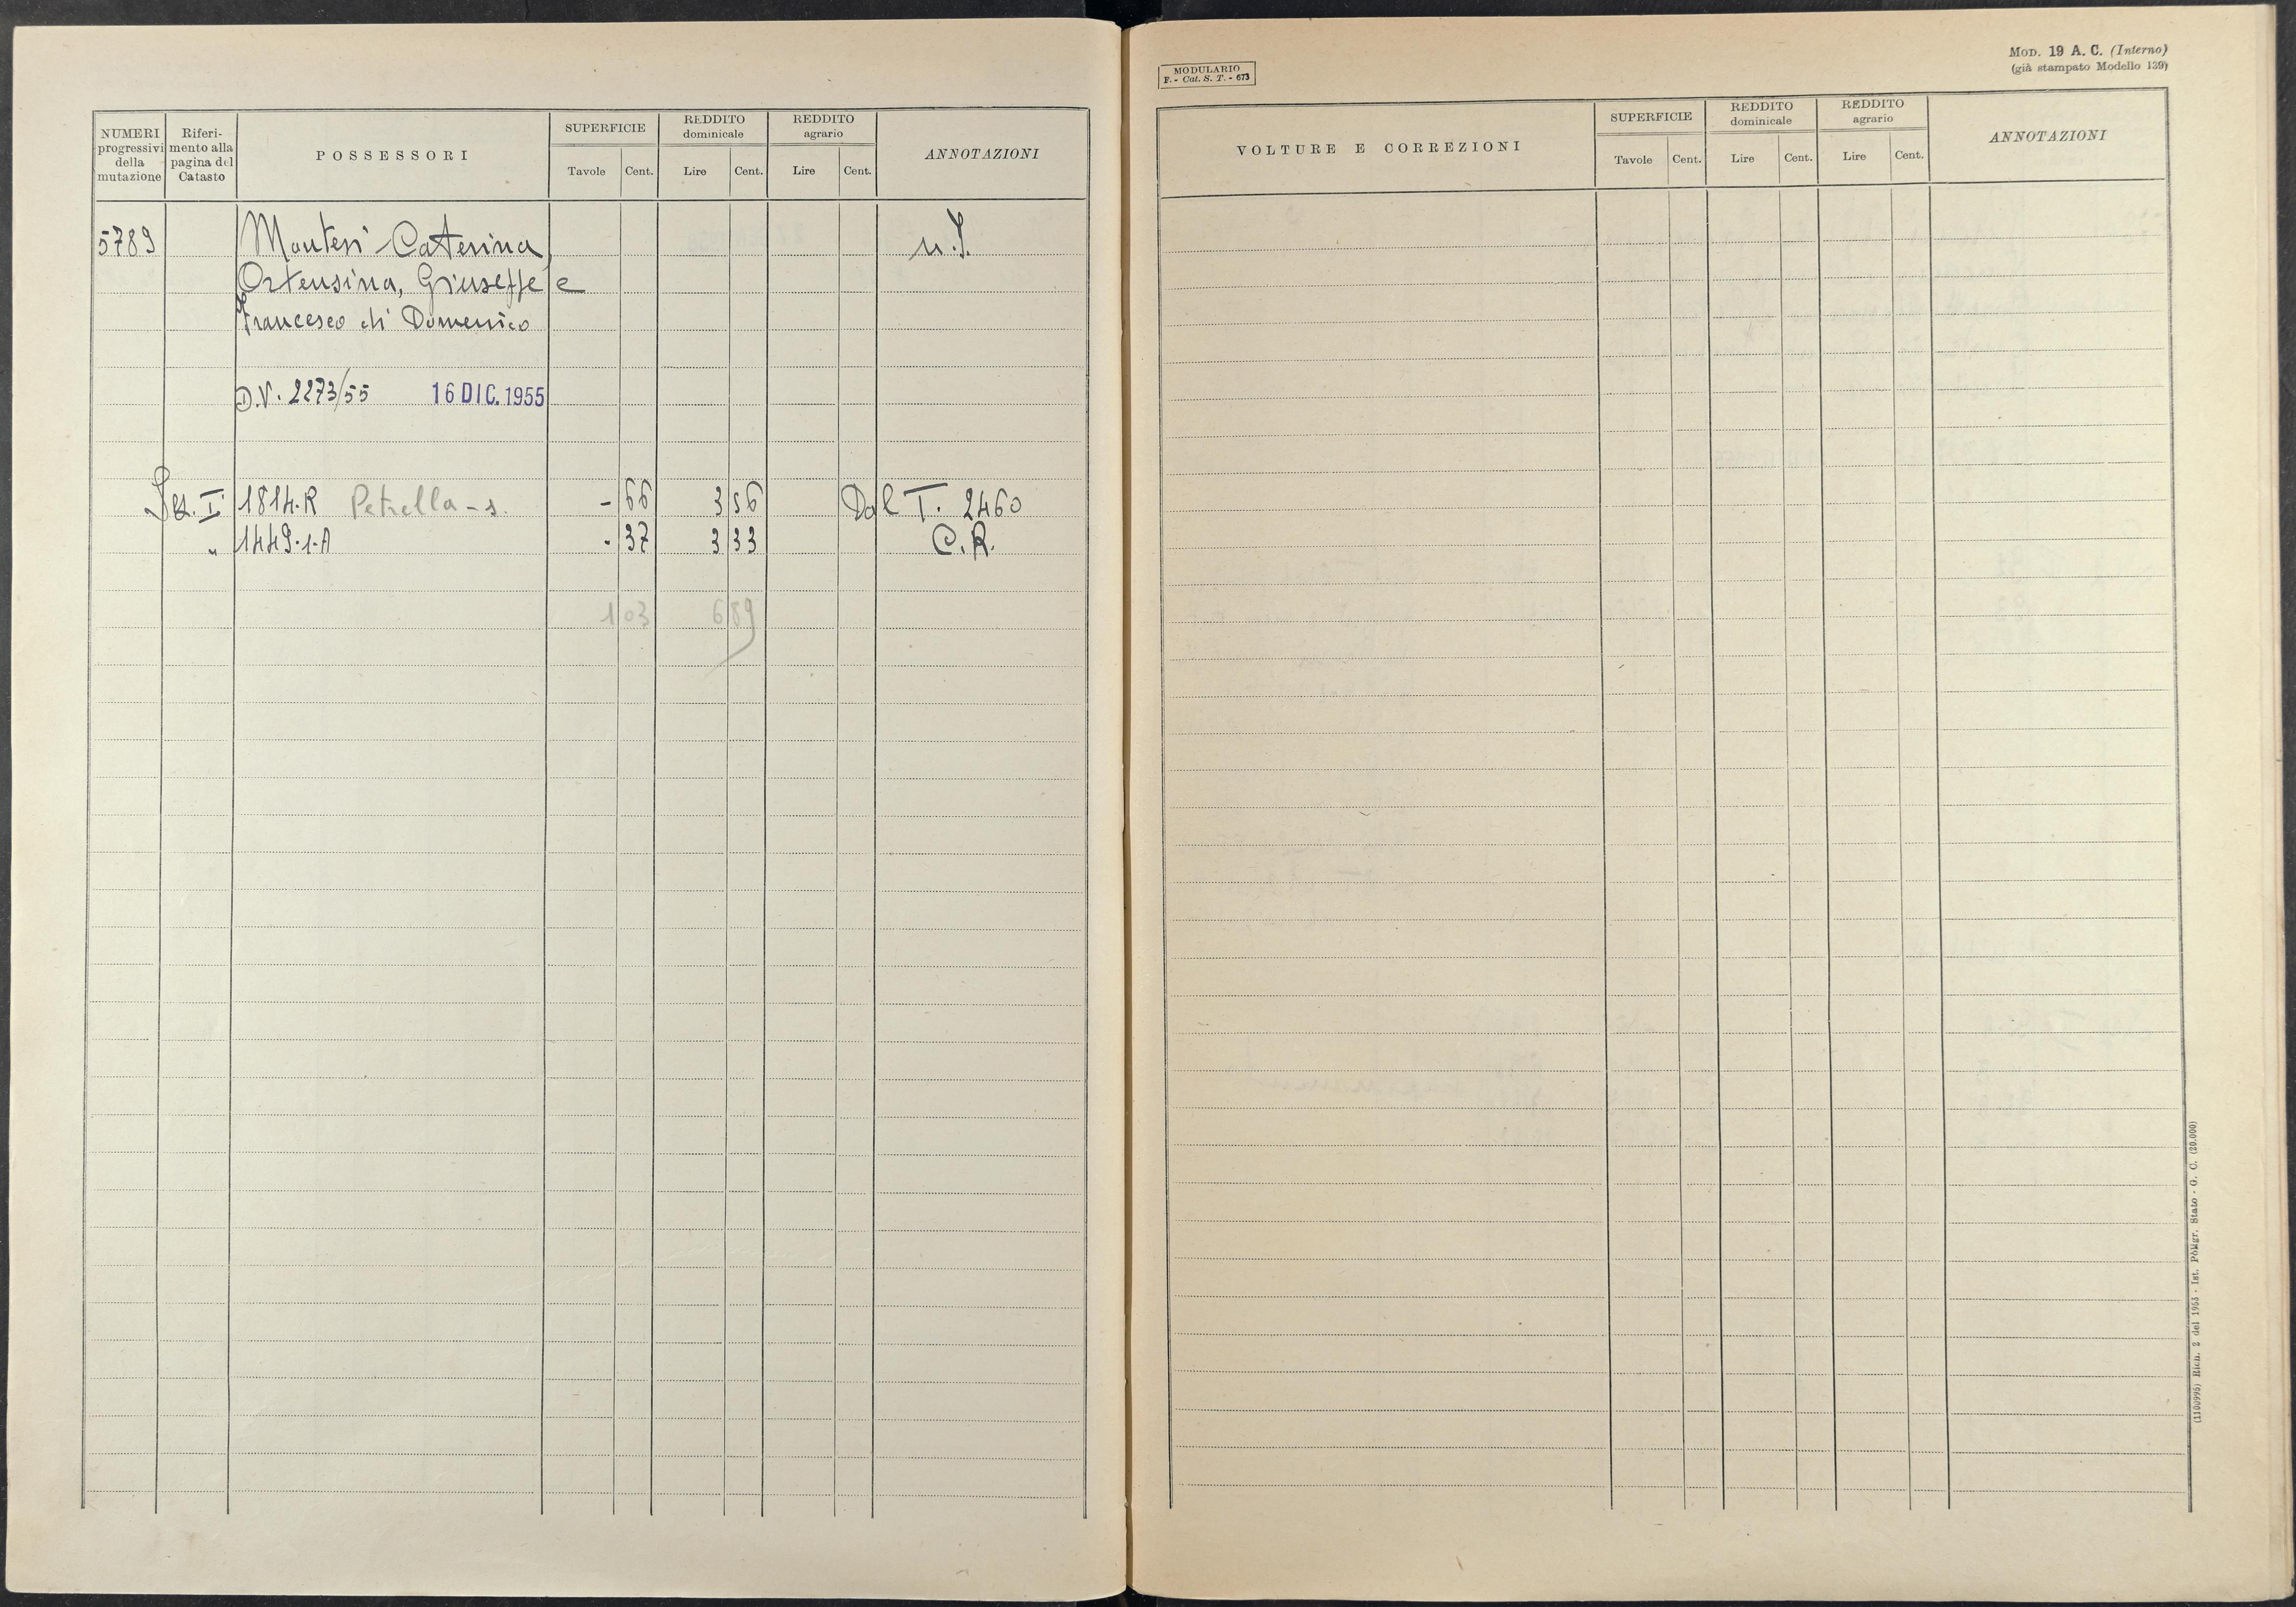 NUMERI progressivi della mutazione
Riferimento alla pagina del Catasto
POSSESSORI
SUPERFICIE
Tavole Cent.
REDDITO dominicale
Lire Cent.
REDDITO agrario
Lire Cent.
ANNOTAZIONI
5789 Montesi Caterina, n.I.
Ortensina, Giuseppe e
Francesco di Domenico
D.V. 2273/55 16 DIC. 1955
Sez. I 1814.R Petrella-s. - 66 3 56 Dal T. 2460
" 1449.1.A - 37 3 33 C.R.
1 03 6 89
MODULARIO
F. - Cat. S. T. - 673
MOD. 19 A. C. (Interno)
(già stampato Modello 139)
VOLTURE E CORREZIONI
SUPERFICIE
Tavole Cent.
REDDITO dominicale
Lire Cent.
REDDITO agrario
Lire Cent.
ANNOTAZIONI
(1100995) Rich. 2 del 1953 - Ist. Poligr. Stato - G. C. (20.000)